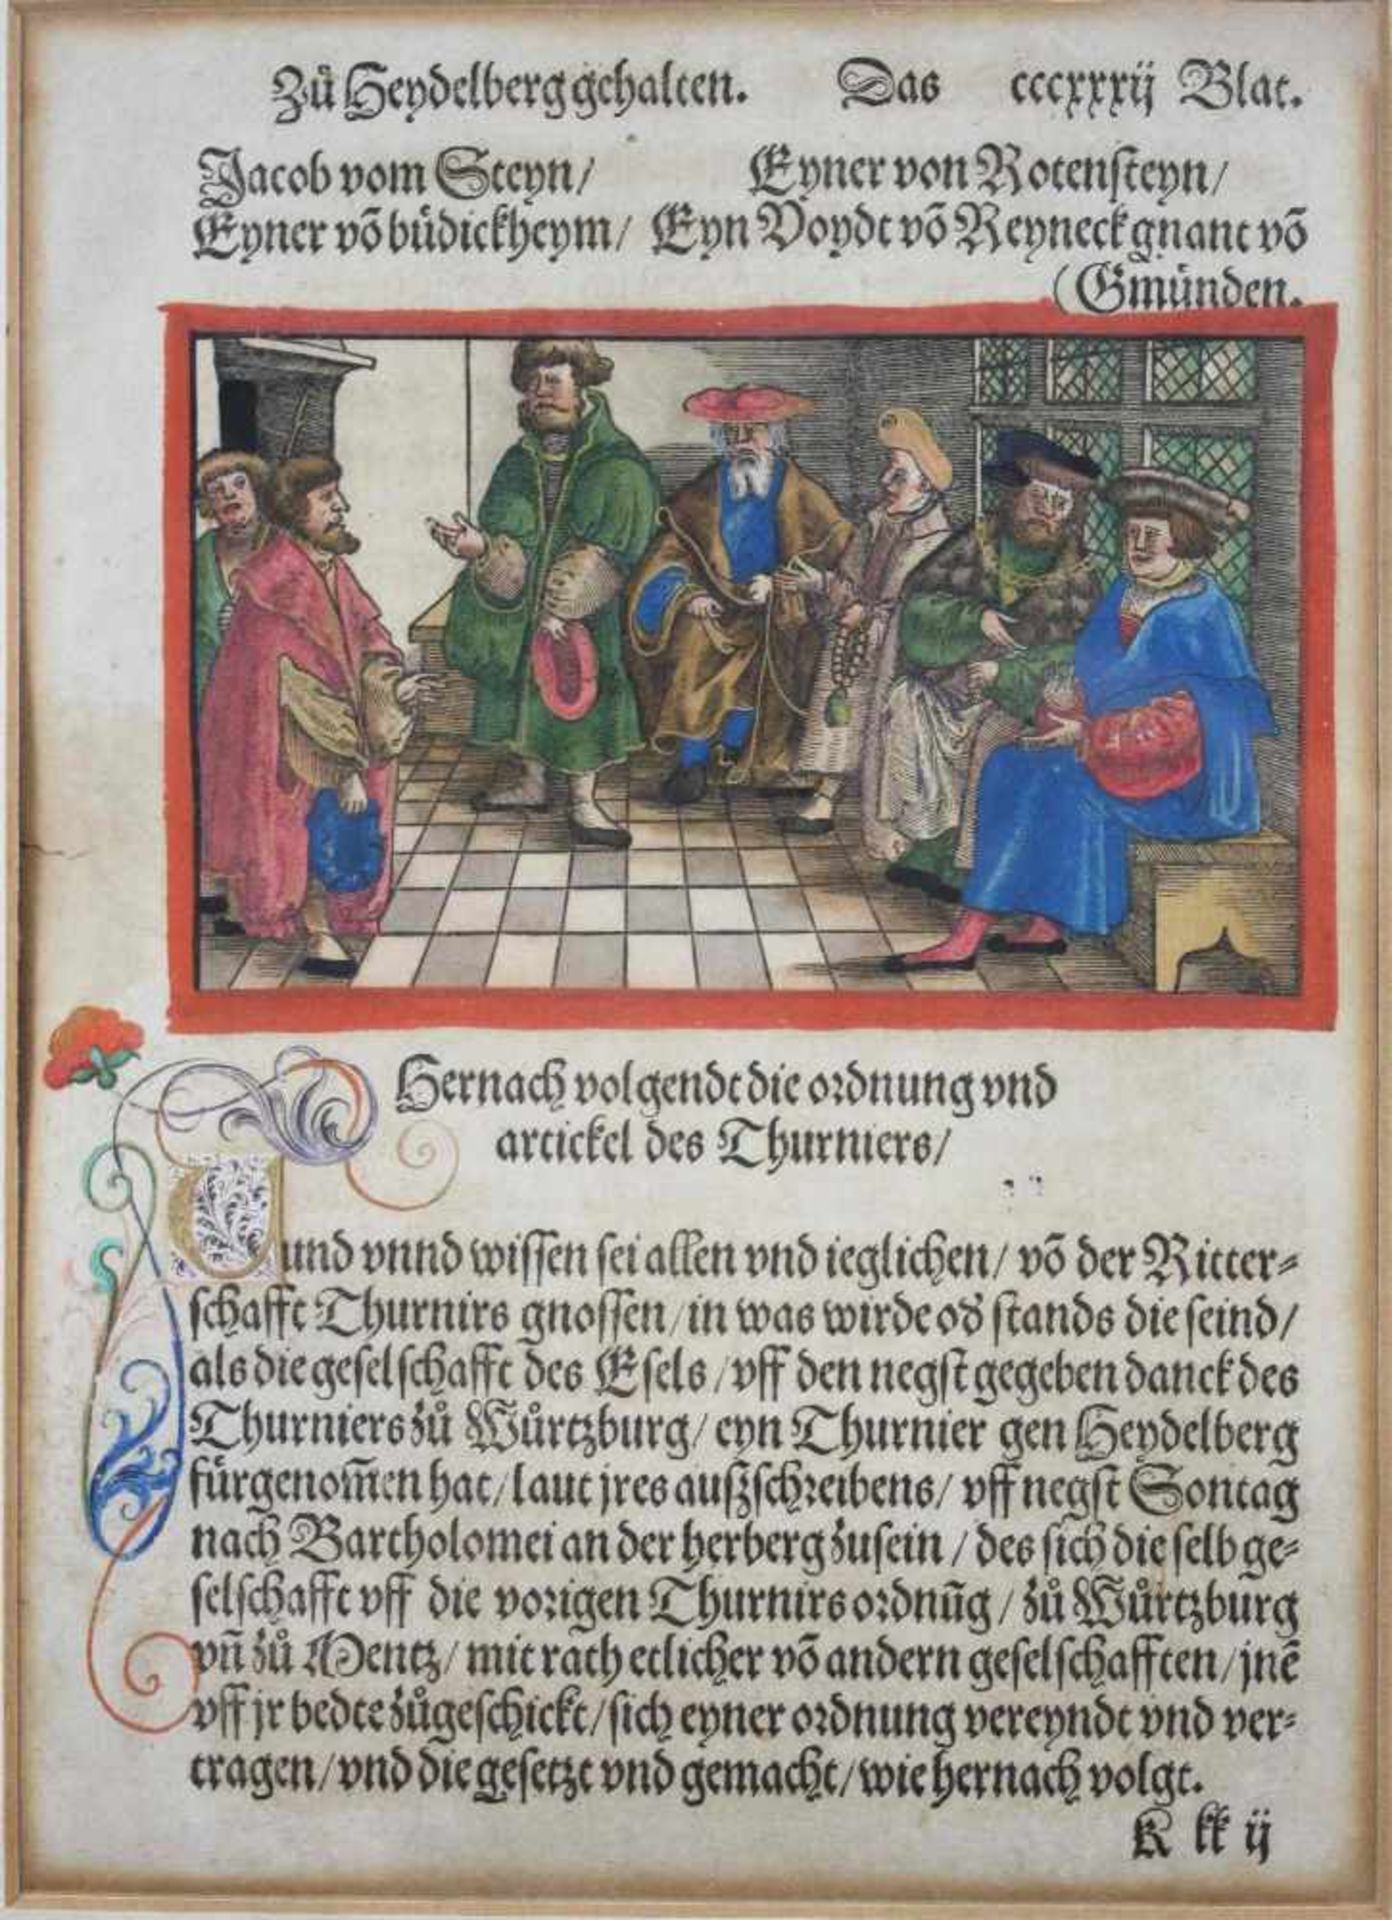 Zů Heydelberg gehalten. Das cccxxxij Blat.
Jacob vom Steyn/ Eyner von Rotensteyn/
Eyner võ büdickheym/ Eyn Voydt võ Reyneck gnant võ
(Gmünden.
Hernach volgendt die ordnung vnd
artickel des Thurniers/
Kund vnnd wissen sei allen vnd ieglichen/ võ der Ritter-
schafft Thurnirs gnossen/ in was wirde od stands die seind/
als die geselschafft des Esels/ vff den negst gegeben danck des
Thurniers zů Wůrtzburg/ eyn Thurnier gen Heydelberg
fürgenom̃en hat/ laut jres außschreibens/ vff negst Sontag
nach Bartholomei an der herberg zusein/ des sich die selb ge-
selschafft vff die vorigen Thurnirs ordnũg/ zů Wůrtzburg
vñ zů Mentz/ mit rath etlicher võ andern geselschafften/ jnẽ
vff jr bedte zůgeschickt/ sich eyner ordnung vereyndt vnd ver-
tragen/ vnd die gesetzt vnd gemacht/ wie hernach volgt.
K kk ij